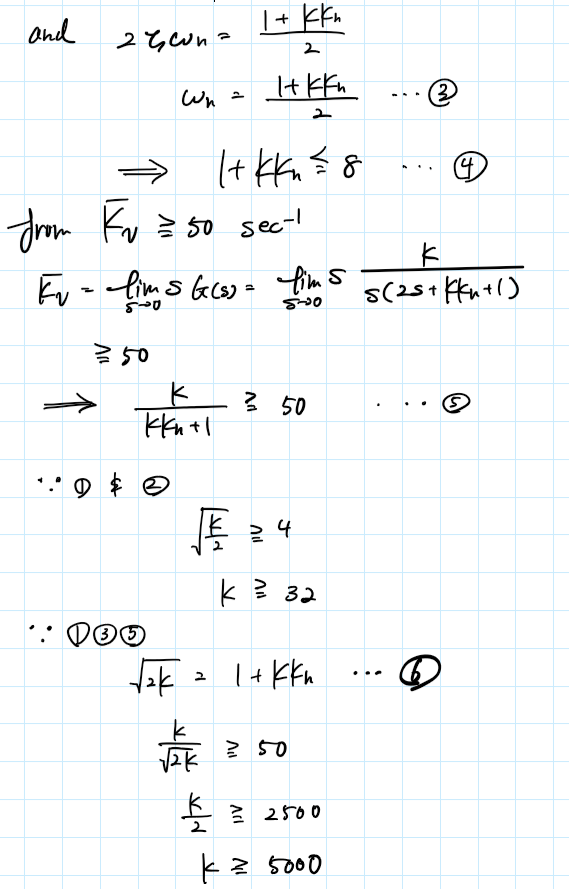 and 2ζωn = (1 + KKn)/2
ωn = (1 + KKn)/2 ... ③
⟹ 1 + KKn ≦ 8 ... ④
from K̄v ≧ 50 sec⁻¹
K̄v = lim s→0 s G(s) = lim s→0 s K/(s(2s + KKn + 1))
≧ 50
⟹ K/(KKn + 1) ≧ 50 ... ⑤
∵ ① & ②
√(K/2) ≧ 4
K ≧ 32
∵ ①③⑤
√2K = 1 + KKn ... ⑥
K/√2K ≧ 50
K/2 ≧ 2500
K ≧ 5000